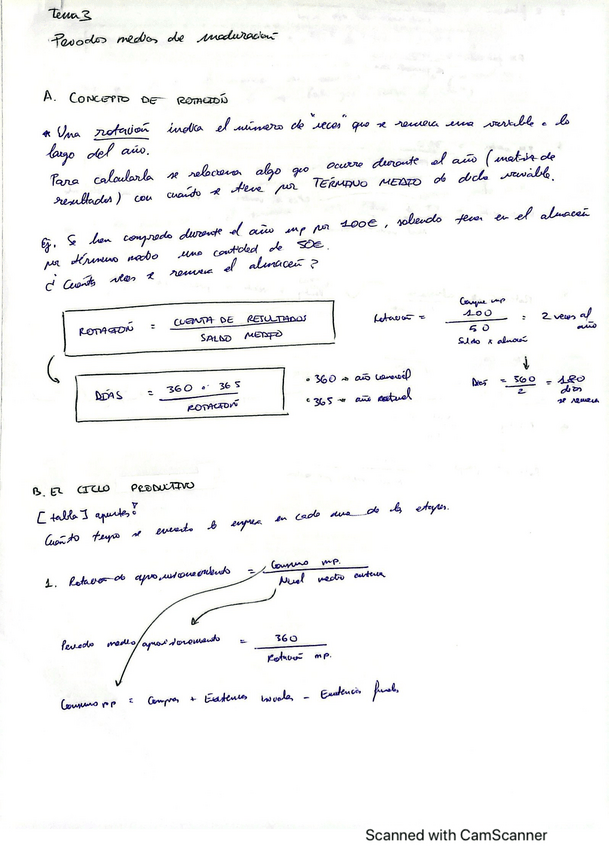 Tema 3
Periodos medios de maduración
A. CONCEPTO DE ROTACIÓN
* Una rotación indica el número de "veces" que se renueva una variable a lo
largo del año.
Para calcularla se relaciona algo que ocurre durante el año (
resultados) con cuánto se tiene por TÉRMINO MEDIO de dicha variable.
Ej. Se han comprado durante el año mp por 100€, sabiendo tener en el almacén
por término medio una cantidad de 50€.
¿Cuántas veces se renueva el almacén?
ROTACIÓN = CUENTA DE RESULTADOS / SALDO MEDIO
Rotación = Compra mp 100 / 50 Saldo x almacén = 2 veces al año
DÍAS = 360 o 365 / ROTACIÓN
• 360 → año comercial
• 365 → año natural
Días = 360 / 2 = 180 días se renueva
B. EL CICLO PRODUCTIVO
[tabla] apuntes?
Cuánto tiempo se encuentra la empresa en cada una de las etapas.
1. Rotación de aprovisionamiento = Consumo mp. / Nivel medio
Periodo medio aprovisionamiento = 360 / Rotación mp.
Consumo mp = Compras + Existencias iniciales - Existencias finales
Scanned with CamScanner